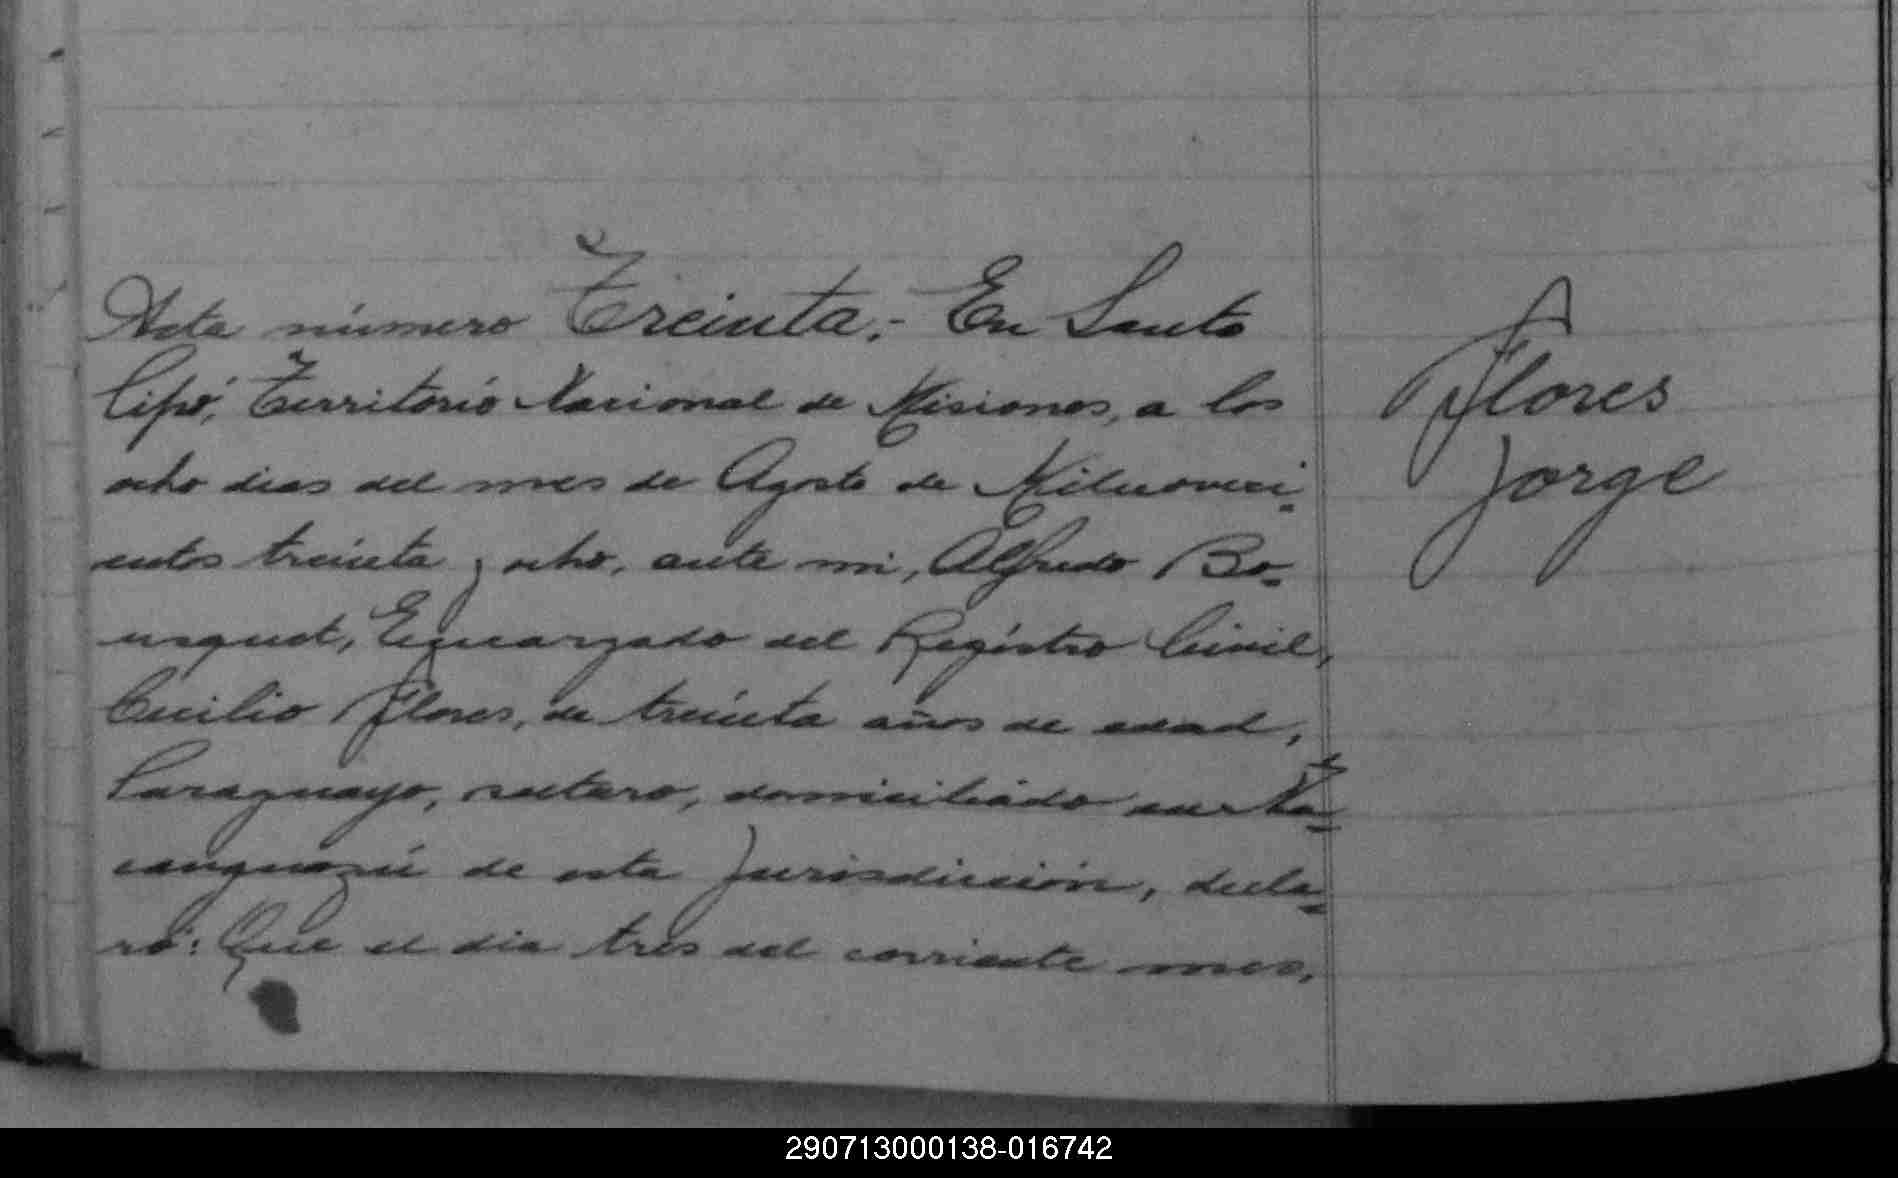 Acta número Treinta.- En Santo
Cipó, Território Nacional de Misiones, a los
ocho dias del mes de Agosto de Milnoveci-
entos treinta y ocho, ante mi, Alfredo Bo-
usquet, Encargado del Registro Civil,
Cecilio Flores, de treinta años de edad,
Paraguayo, soltero, domiciliado en Ya-
canguazú de esta Jurisdicción, decla-
ró: Que el dia tres del corriente mes,
Flores
Jorge
290713000138-016742